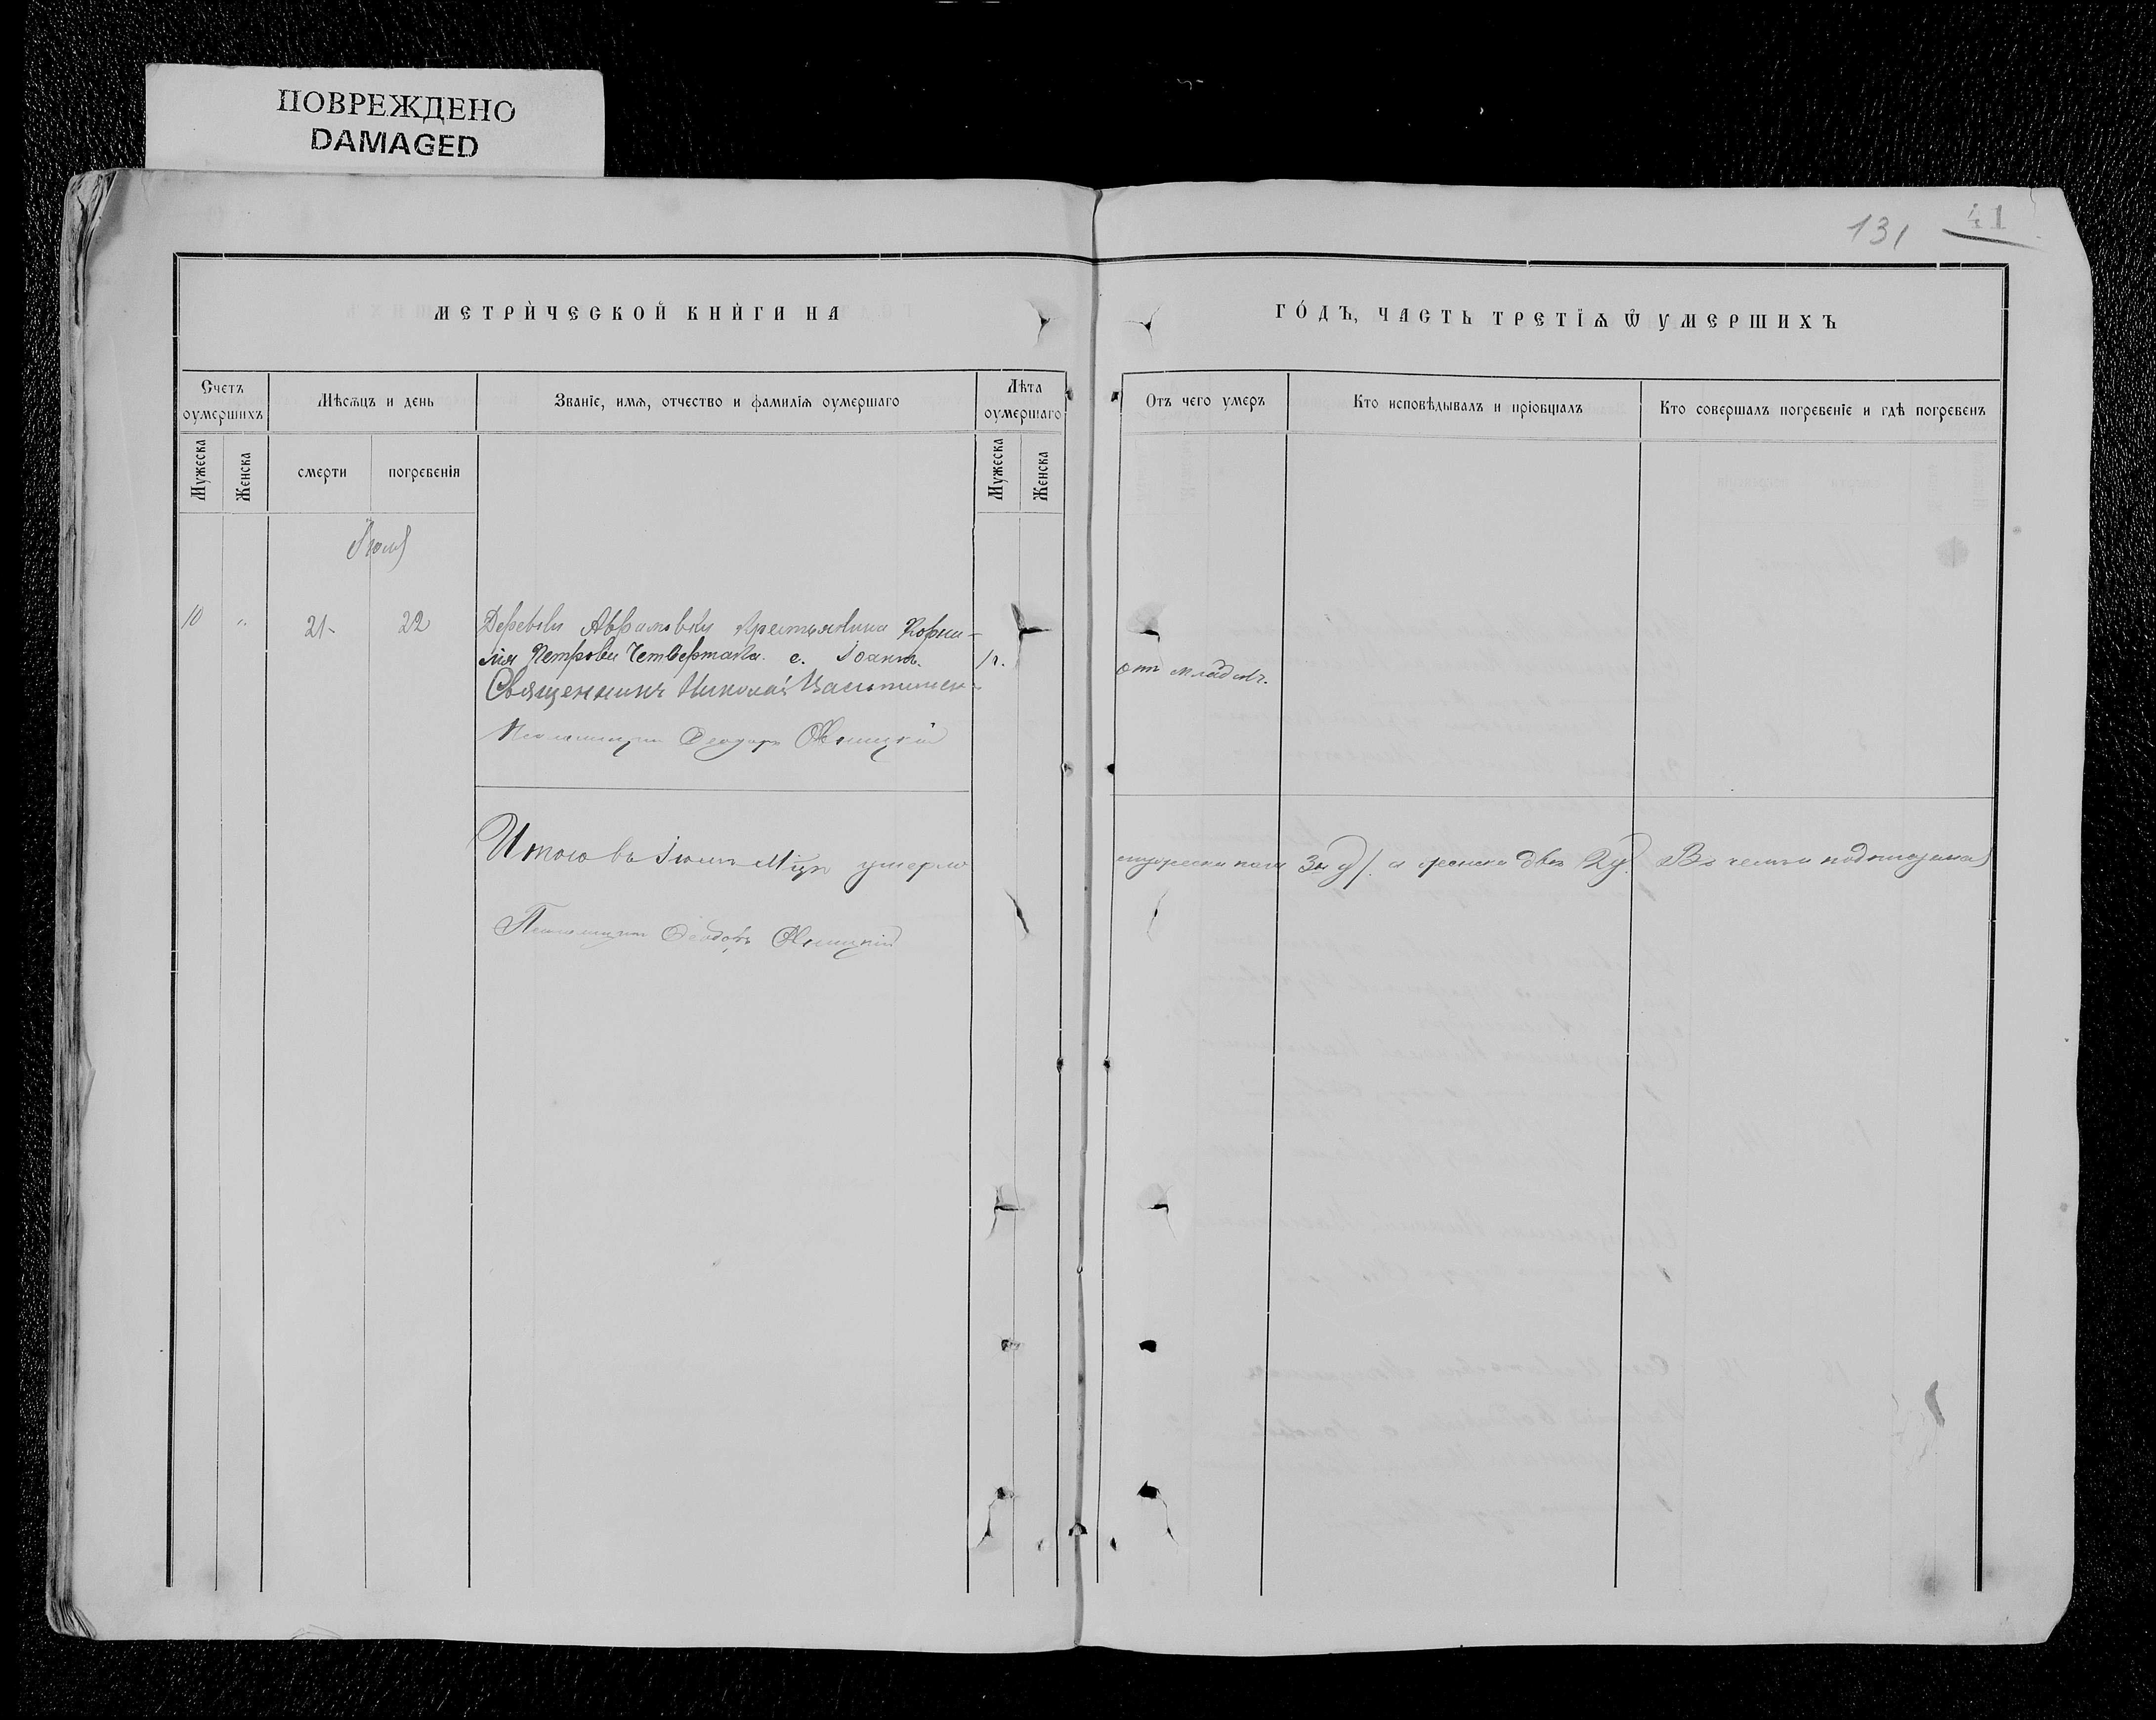 ПОВРЕЖДЕНО
DAMAGED
131 41
МЕТРИ́ЧЕСКОЙ КНИ́ГИ НА
ГО́ДЪ, ЧАСТЬ ТРЕТІѦ Ѿ УМЕРШИХЪ
Счетъ оумершихъ
Мѣсѧцъ и день
Званіе, имѧ, отчество и фамиліѧ оумершаго
Лѣта оумершаго
Отъ чего умеръ
Кто исповѣдывалъ и пріобщалъ
Кто совершалъ погребеніе и гдѣ погребенъ
Мужеска
Женска
смерти
погребенія
Мужеска
Женска
10 " 21- 22 Деревни Аврамовки крестьянина Корни-
лія Петрова Четвертака. с. Іоаннъ.
отъ младен.
Священникъ Николай
Псаломщикъ Ѳеодоръ
Итого въ Іюлѣ Мцѣ умерло
а женска двѣ 2 д. Въ чемъ и подписуемся
Псаломщикъ Ѳеодоръ